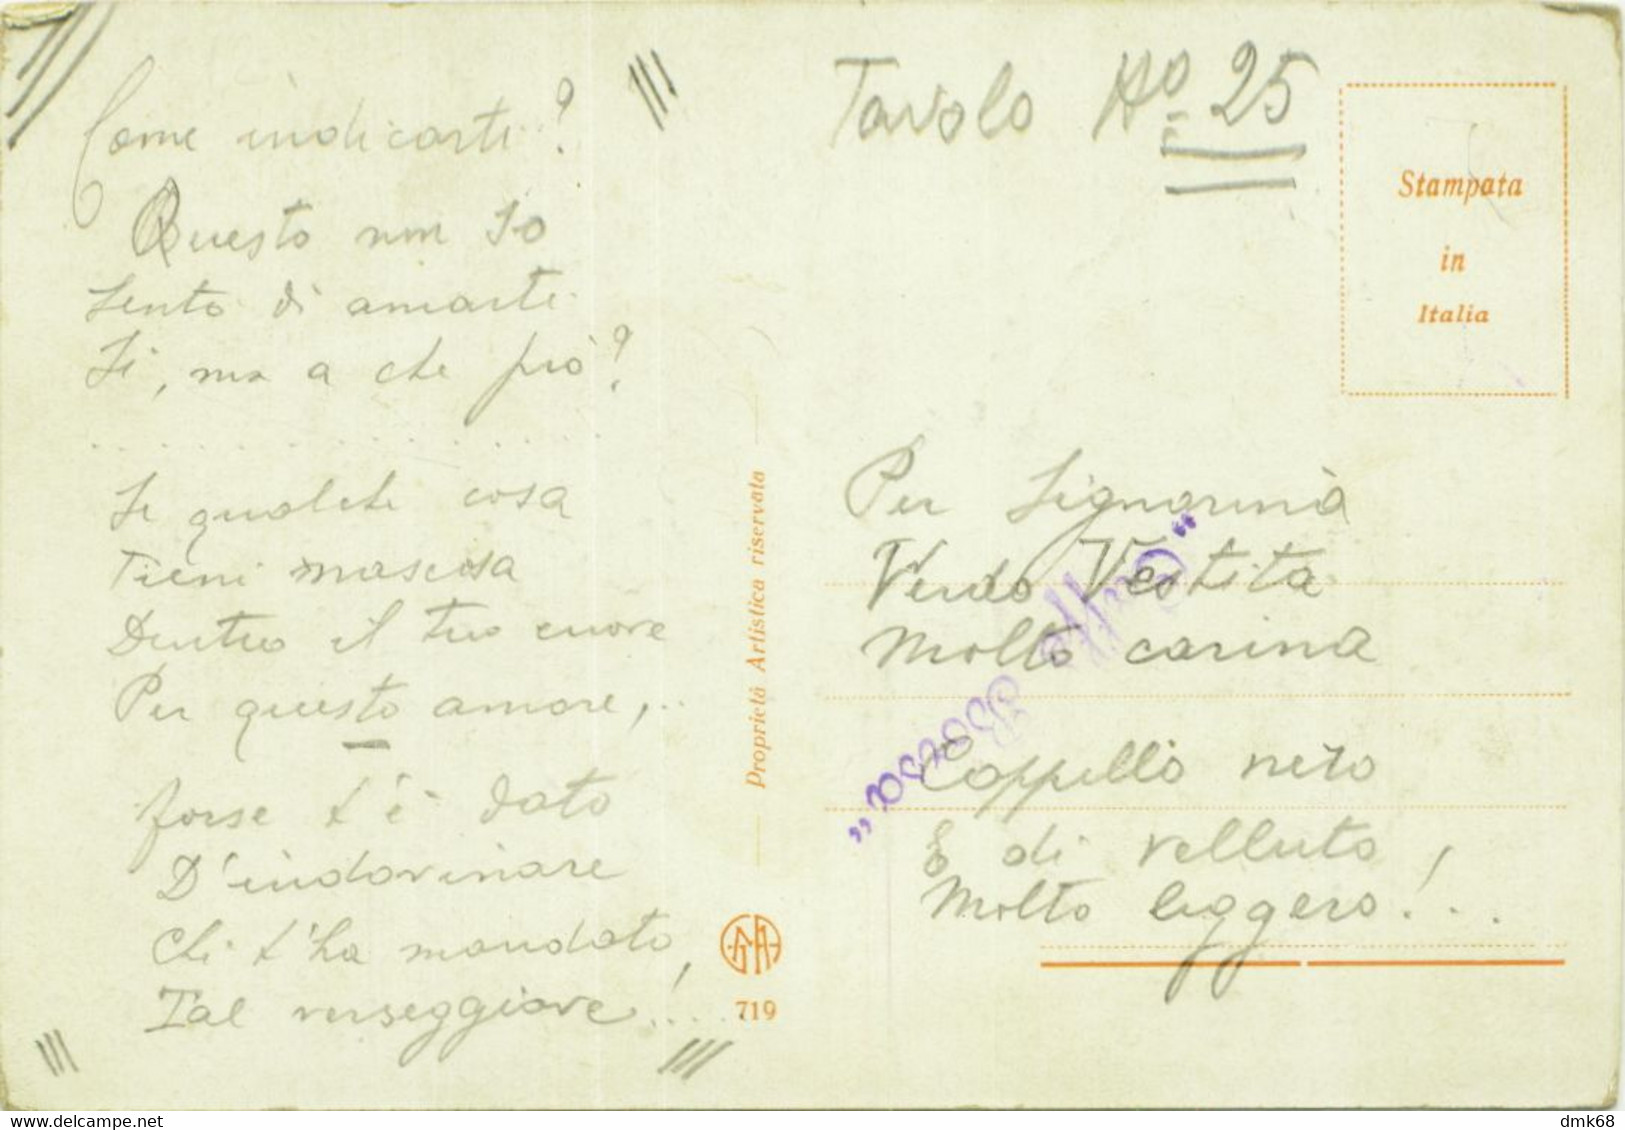 Come indicarti?
Questo non so
Sento di amarti
Si, ma a che prò?
. . . . . . . . . . . . . . . .
Se qualche cosa
Tieni nascosa
Dentro il tuo cuore
Per questo amore,..
forse t'è dato
D'indovinare
Chi t'ha mandato,
Tal verseggiare!....
Tavolo No 25
Stampata
in
Italia
Per Signorina
Verdo Vestita
Molto carina
Cappello nero
E di velluto,
Molto leggero!...
Proprietà Artistica riservata
719
delcampe.net
dmk68